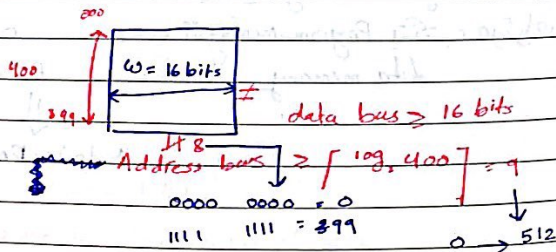 000
400
ω = 16 bits
399
data bus ≥ 16 bits
8
Address bus ≥ ⌈log₂ 400⌉ = 9
0000 0000 = 0
1111 1111 = 399
0 → 512